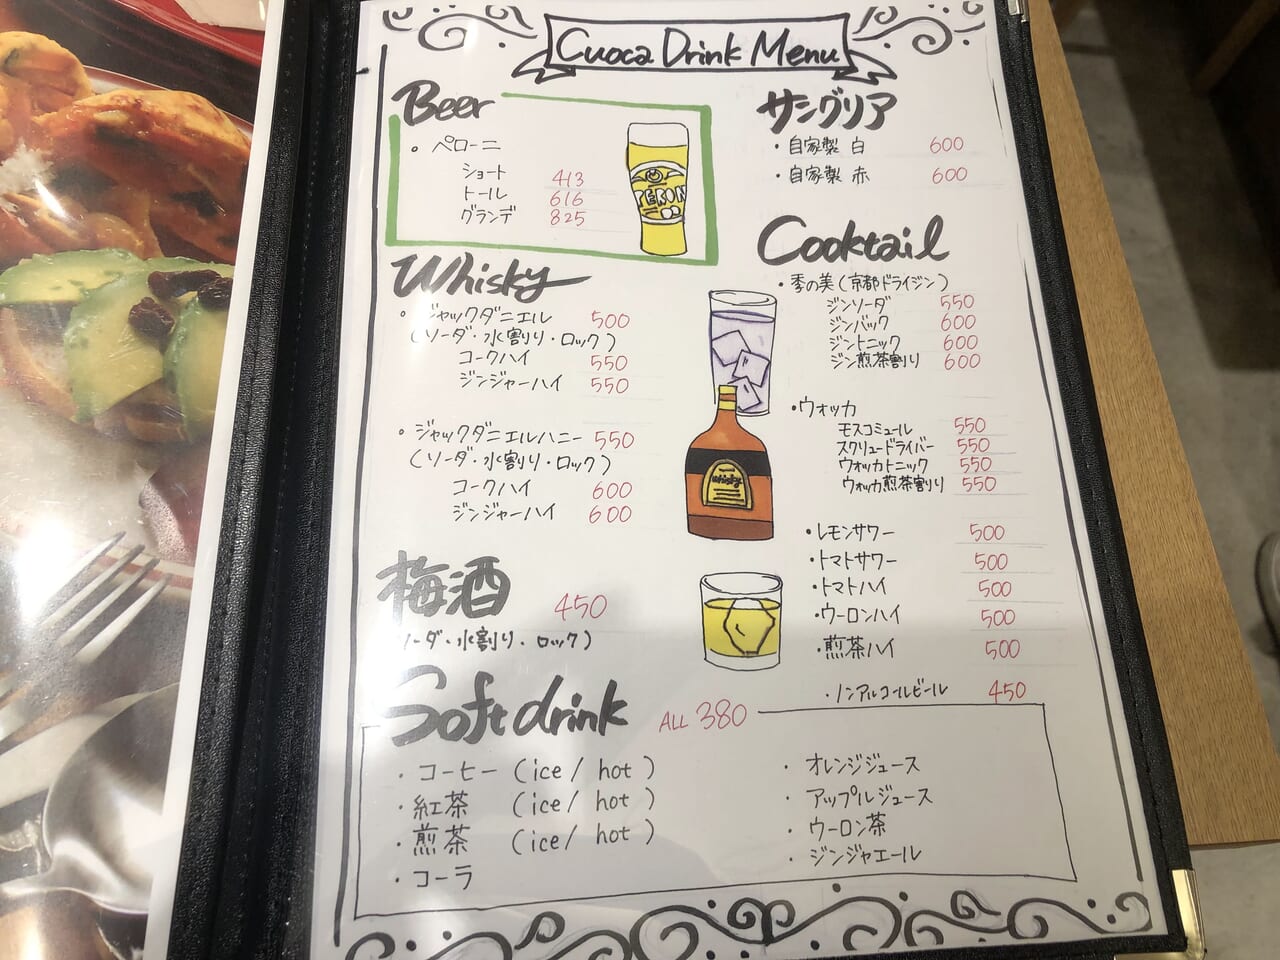 Cuoca Drink Menu
Beer
・ペローニ
ショート 413
トール 616
グランデ 825
PERONI
Whisky
・ジャックダニエル 500
(ソーダ・水割り・ロック)
コークハイ 550
ジンジャーハイ 550
・ジャックダニエルハニー 550
(ソーダ・水割り・ロック)
コークハイ 600
ジンジャーハイ 600
梅酒 450
ソーダ・水割り・ロック)
サングリア
・自家製 白 600
・自家製 赤 600
Cooktail
・季の美(京都ドライジン)
ジンソーダ 550
ジンバック 600
ジントニック 600
ジン煎茶割り 600
whisky
・ウォッカ
モスコミュール 550
スクリュードライバー 550
ウォッカトニック 550
ウォッカ煎茶割り 550
・レモンサワー 500
・トマトサワー 500
・トマトハイ 500
・ウーロンハイ 500
・煎茶ハイ 500
・ノンアルコールビール 450
Soft drink ALL 380
・コーヒー (ice / hot)
・紅茶 (ice / hot)
・煎茶 (ice / hot)
・コーラ
・オレンジジュース
・アップルジュース
・ウーロン茶
・ジンジャエール